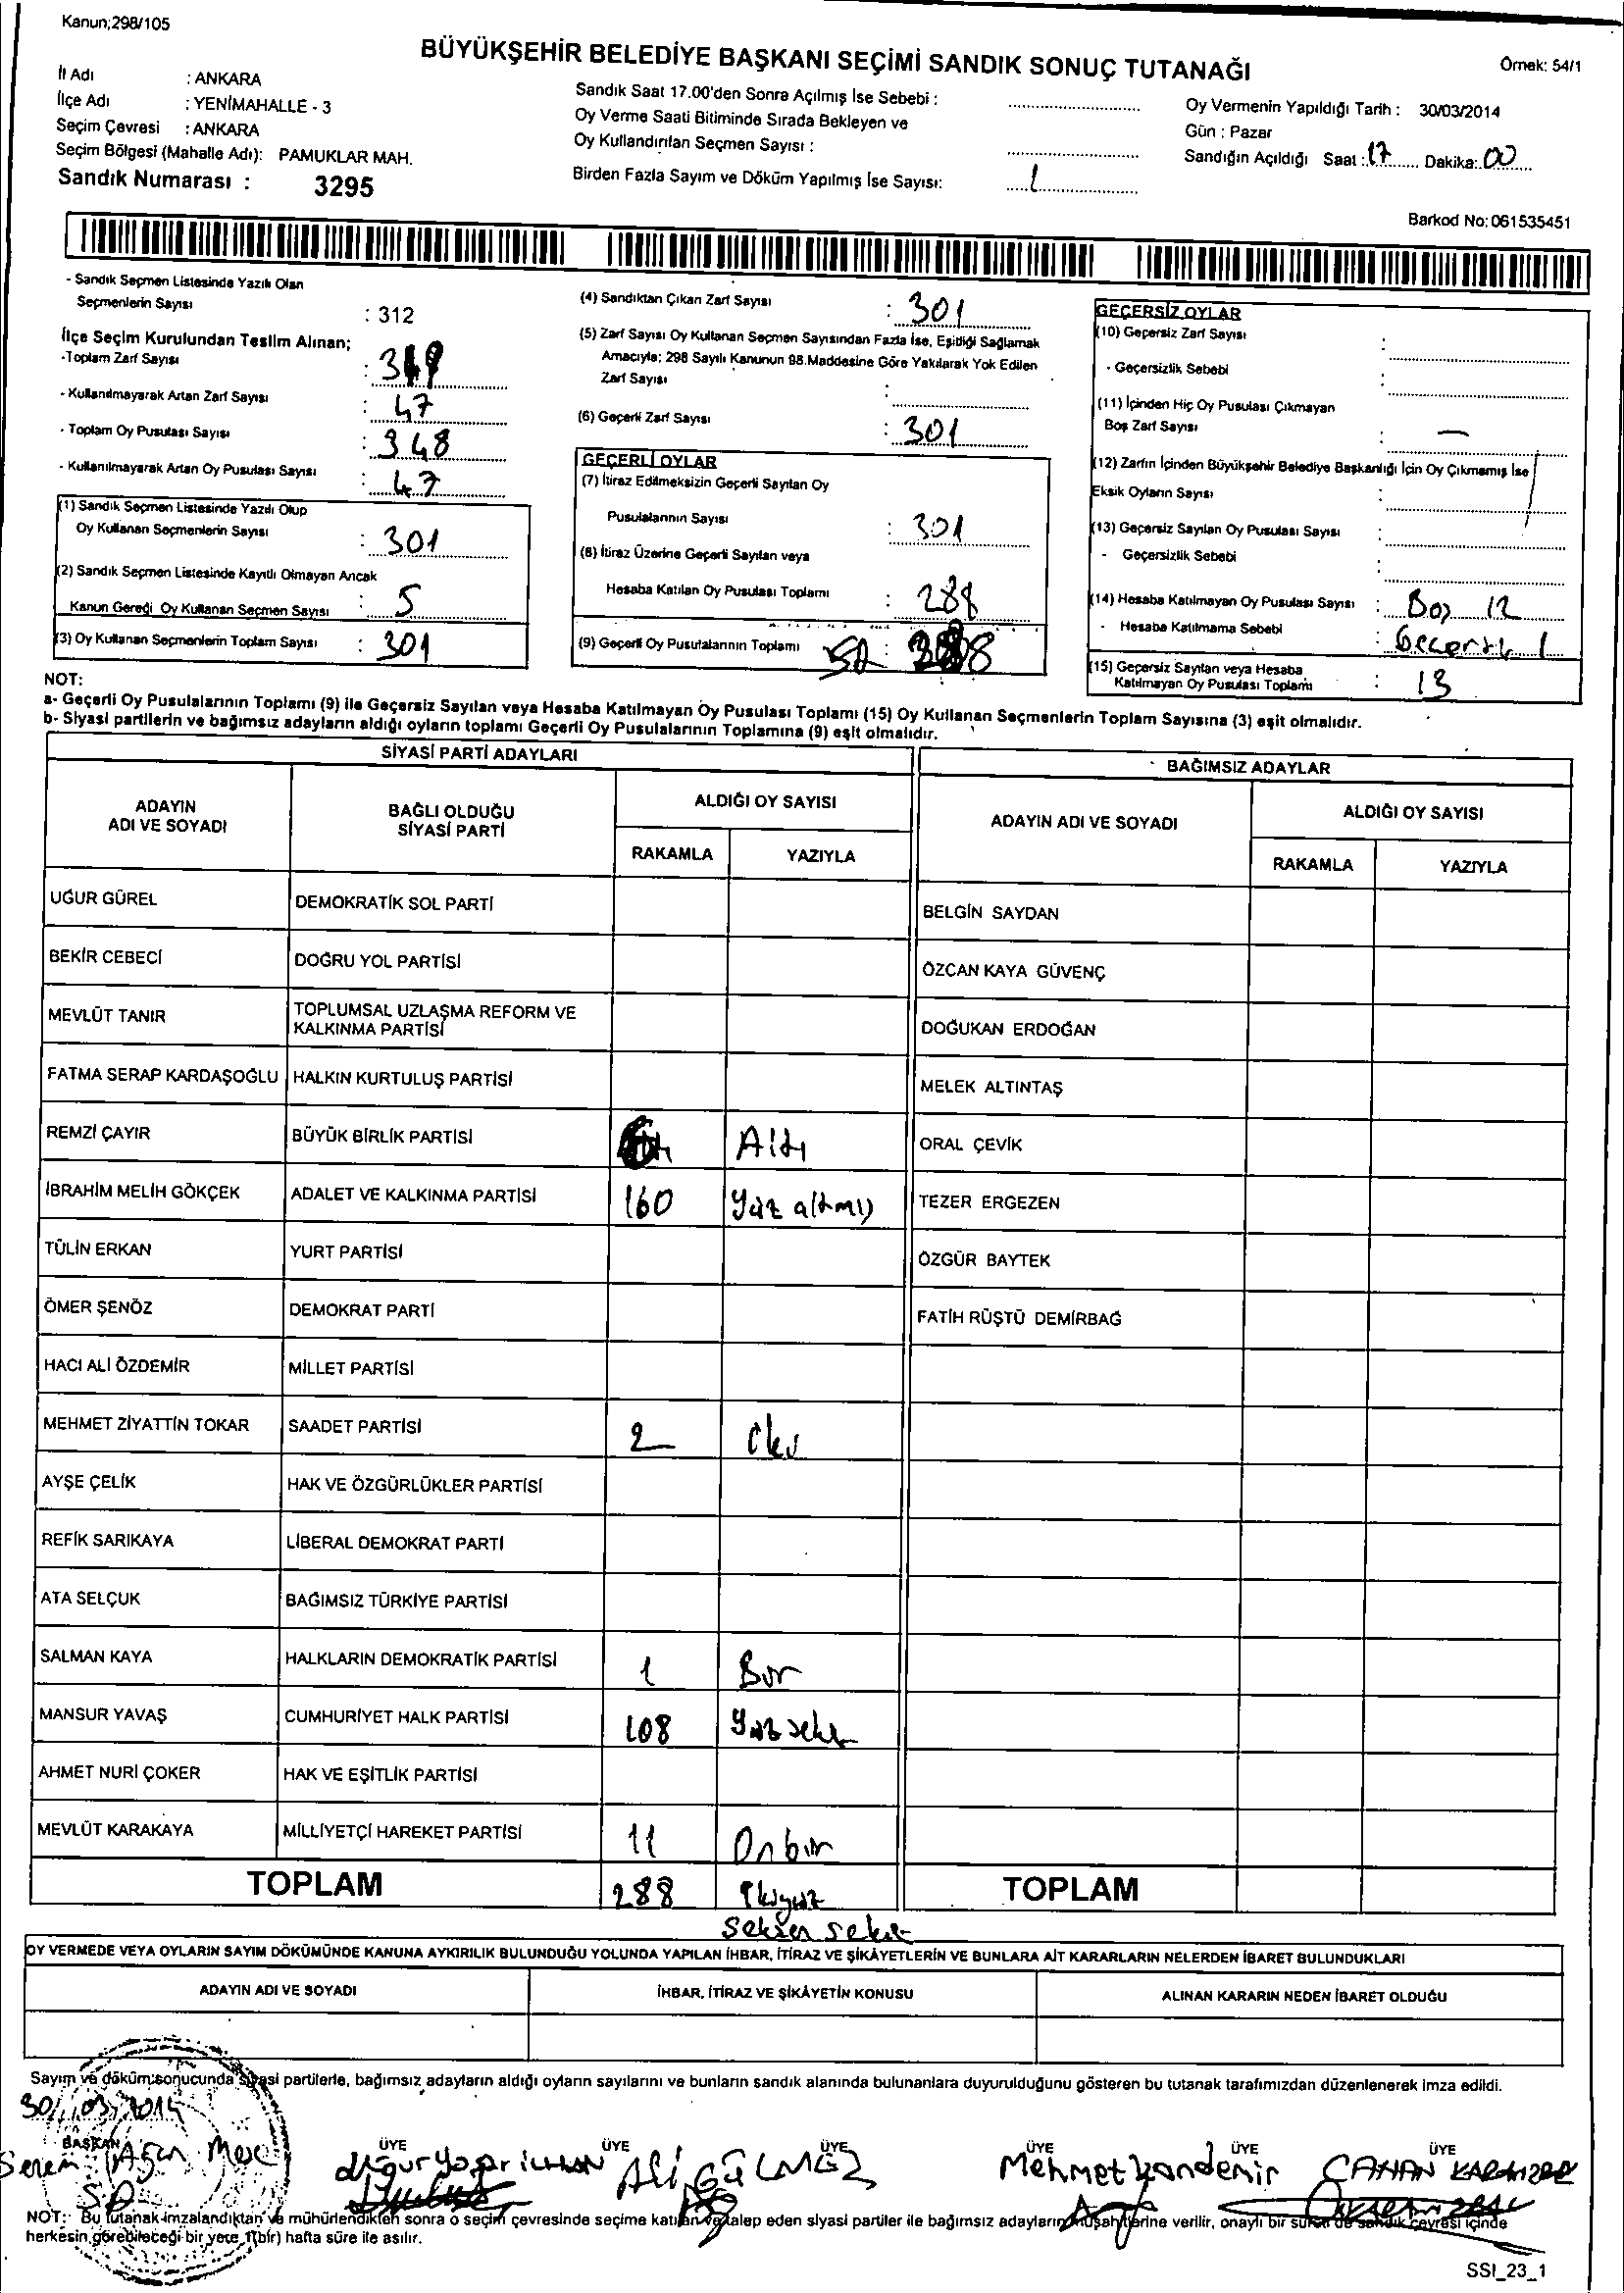 Kanun;298/105
BÜYÜKŞEHİR BELEDİYE BAŞKANI SEÇİMİ SANDIK SONUÇ TUTANAĞI
Örnek: 54/1
İl Adı : ANKARA
İlçe Adı : YENİMAHALLE - 3
Seçim Çevresi : ANKARA
Seçim Bölgesi (Mahalle Adı): PAMUKLAR MAH.
Sandık Numarası : 3295
Sandık Saat 17.00'den Sonra Açılmış İse Sebebi :
Oy Verme Saati Bitiminde Sırada Bekleyen ve
Oy Kullandırılan Seçmen Sayısı :
Birden Fazla Sayım ve Döküm Yapılmış İse Sayısı: 1
Oy Vermenin Yapıldığı Tarih : 30/03/2014
Gün : Pazar
Sandığın Açıldığı Saat : 17 Dakika: 00
Barkod No: 061535451
- Sandık Seçmen Listesinde Yazılı Olan
Seçmenlerin Sayısı : 312
İlçe Seçim Kurulundan Teslim Alınan;
-Toplam Zarf Sayısı :
- Kullanılmayarak Artan Zarf Sayısı : 47
- Toplam Oy Pusulası Sayısı : 348
- Kullanılmayarak Artan Oy Pusulası Sayısı : 47
(1) Sandık Seçmen Listesinde Yazılı Olup
Oy Kullanan Seçmenlerin Sayısı : 301
(2) Sandık Seçmen Listesinde Kayıtlı Olmayan Ancak
Kanun Gereği Oy Kullanan Seçmen Sayısı : 5
(3) Oy Kullanan Seçmenlerin Toplam Sayısı : 301
(4) Sandıktan Çıkan Zarf Sayısı : 301
(5) Zarf Sayısı Oy Kullanan Seçmen Sayısından Fazla İse, Eşitliği Sağlamak
Amacıyla; 298 Sayılı Kanunun 98.Maddesine Göre Yakılarak Yok Edilen
Zarf Sayısı :
(6) Geçerli Zarf Sayısı : 301
GEÇERLİ OYLAR
(7) İtiraz Edilmeksizin Geçerli Sayılan Oy
Pusulalarının Sayısı : 301
(8) İtiraz Üzerine Geçerli Sayılan veya
Hesaba Katılan Oy Pusulası Toplamı : 288
(9) Geçerli Oy Pusulalarının Toplamı :
GEÇERSİZ OYLAR
(10) Geçersiz Zarf Sayısı :
- Geçersizlik Sebebi :
(11) İçinden Hiç Oy Pusulası Çıkmayan
Boş Zarf Sayısı : —
(12) Zarfın İçinden Büyükşehir Belediye Başkanlığı İçin Oy Çıkmamış İse
Eksik Oyların Sayısı :
(13) Geçersiz Sayılan Oy Pusulası Sayısı :
- Geçersizlik Sebebi :
(14) Hesaba Katılmayan Oy Pusulası Sayısı : Boş 12
- Hesaba Katılmama Sebebi : 1
(15) Geçersiz Sayılan veya Hesaba
Katılmayan Oy Pusulası Toplamı : 13
NOT:
a- Geçerli Oy Pusulalarının Toplamı (9) ile Geçersiz Sayılan veya Hesaba Katılmayan Oy Pusulası Toplamı (15) Oy Kullanan Seçmenlerin Toplam Sayısına (3) eşit olmalıdır.
b- Siyasi partilerin ve bağımsız adayların aldığı oyların toplamı Geçerli Oy Pusulalarının Toplamına (9) eşit olmalıdır.
SİYASİ PARTİ ADAYLARI
ADAYIN ADI VE SOYADI | BAĞLI OLDUĞU SİYASİ PARTİ | ALDIĞI OY SAYISI
RAKAMLA | YAZIYLA
UĞUR GÜREL | DEMOKRATİK SOL PARTİ
BEKİR CEBECİ | DOĞRU YOL PARTİSİ
MEVLÜT TANIR | TOPLUMSAL UZLAŞMA REFORM VE KALKINMA PARTİSİ
FATMA SERAP KARDAŞOĞLU | HALKIN KURTULUŞ PARTİSİ
REMZİ ÇAYIR | BÜYÜK BİRLİK PARTİSİ | Altı
İBRAHİM MELİH GÖKÇEK | ADALET VE KALKINMA PARTİSİ | 160 | Yüz altmış
TÜLİN ERKAN | YURT PARTİSİ
ÖMER ŞENÖZ | DEMOKRAT PARTİ
HACI ALİ ÖZDEMİR | MİLLET PARTİSİ
MEHMET ZİYATTİN TOKAR | SAADET PARTİSİ | 2 | iki
AYŞE ÇELİK | HAK VE ÖZGÜRLÜKLER PARTİSİ
REFİK SARIKAYA | LİBERAL DEMOKRAT PARTİ
ATA SELÇUK | BAĞIMSIZ TÜRKİYE PARTİSİ
SALMAN KAYA | HALKLARIN DEMOKRATİK PARTİSİ | 1 | Bir
MANSUR YAVAŞ | CUMHURİYET HALK PARTİSİ | 108 | Yüz sekiz
AHMET NURİ ÇOKER | HAK VE EŞİTLİK PARTİSİ
MEVLÜT KARAKAYA | MİLLİYETÇİ HAREKET PARTİSİ | 11 | Onbir
TOPLAM | 288 | ikiyüz
seksen sekiz
BAĞIMSIZ ADAYLAR
ADAYIN ADI VE SOYADI | ALDIĞI OY SAYISI
RAKAMLA | YAZIYLA
BELGİN SAYDAN
ÖZCAN KAYA GÜVENÇ
DOĞUKAN ERDOĞAN
MELEK ALTINTAŞ
ORAL ÇEVİK
TEZER ERGEZEN
ÖZGÜR BAYTEK
FATİH RÜŞTÜ DEMİRBAĞ
TOPLAM
OY VERMEDE VEYA OYLARIN SAYIM DÖKÜMÜNDE KANUNA AYKIRILIK BULUNDUĞU YOLUNDA YAPILAN İHBAR, İTİRAZ VE ŞİKÂYETLERİN VE BUNLARA AİT KARARLARIN NELERDEN İBARET BULUNDUKLARI
ADAYIN ADI VE SOYADI | İHBAR, İTİRAZ VE ŞİKÂYETİN KONUSU | ALINAN KARARIN NEDEN İBARET OLDUĞU
Sayım ve döküm sonucunda siyasi partilerle, bağımsız adayların aldığı oyların sayılarını ve bunların sandık alanında bulunanlara duyurulduğunu gösteren bu tutanak tarafımızdan düzenlenerek imza edildi.
30/03/2014
BAŞKAN ÜYE ÜYE ÜYE ÜYE ÜYE ÜYE
Ali GÜLMEZ Mehmet Kandemir
NOT: Bu tutanak imzalandıktan ve mühürlendikten sonra o seçim çevresinde seçime katılan ve talep eden siyasi partiler ile bağımsız adayların müşahitlerine verilir, onaylı bir sureti de sandık çevresi içinde
herkesin görebileceği bir yere 1(bir) hafta süre ile asılır.
SSI_23_1